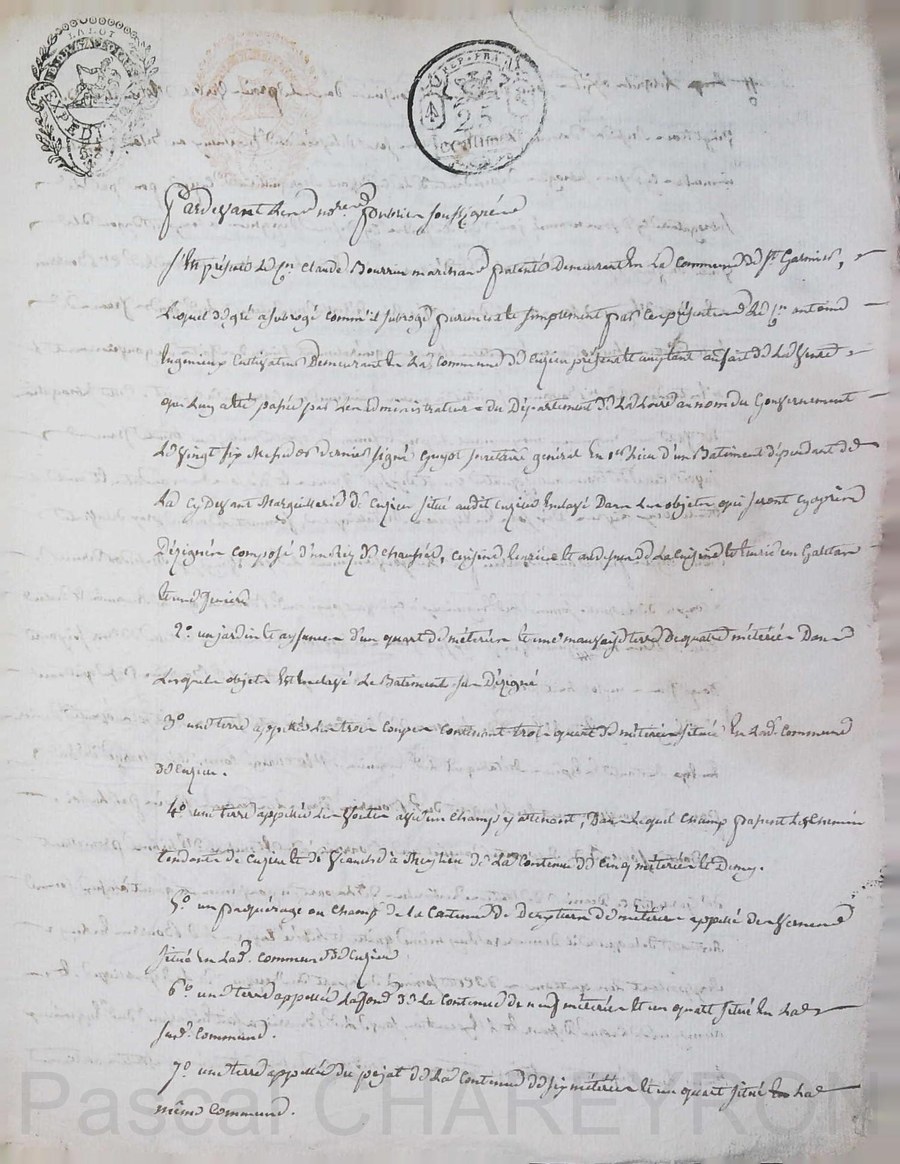 LA LOI
EXPED
REP. FRA.
25
centimes
Pardevant les nores. Publics soussignés
S'est présenté le Cen. Claude Bourrin marchand patenté demeurant en la Commune de St. Galmier,
Lequel de gré a subrogé comm'il subroge purement et simplement par ces présentes le Cen. antoine
Cultivateur Demeurant en la Commune de Cuzieu présent et acceptant au fait de la Vente
qui luy a été passée par les administrateurs du Département de la Loire au nom du Gouvernement
Le Vingt six Messidor dernier signé Guyot secretaire général en 1er. lieu d'un Batiment dépendant de
La Cy Devant Marguillerie de Cuzieu situé audit Cuzieu enclavé Dans les objets qui seront cy après
Dézignés Composé d'un Rez de chaussée, Cuisine, et au dessus de la Cuisine et un Galetas
2o. un jardin et aysances d'un quart de métérée et une mauvaise terre de quatre métérées Dans
Lesquels objets est enclavé le Batiment sus Dézigné
3o une terre appellée les trois Coupes contenant trois quarts de métérée située en lad. Commune
de Cuzieu.
4o une terre appellée les avec un champ y attenant, Dans lequel Champ passent les Chemins
tendants de Cuzieu et de à Meylieu de la Contenue de Cinq métérées et Demy.
5o un paquérage ou Champ de la Contenue de de métérées appellé
situé en lad. Commune de Cuzieu
6o une terre appellée Lafond de la Contenue de neuf métérées et un quart située en la
susd. Commune.
7o une terre appellée du pejat de la Contenue de six métérées et un quart située en la
même Commune.
Pascal CHAREYRON